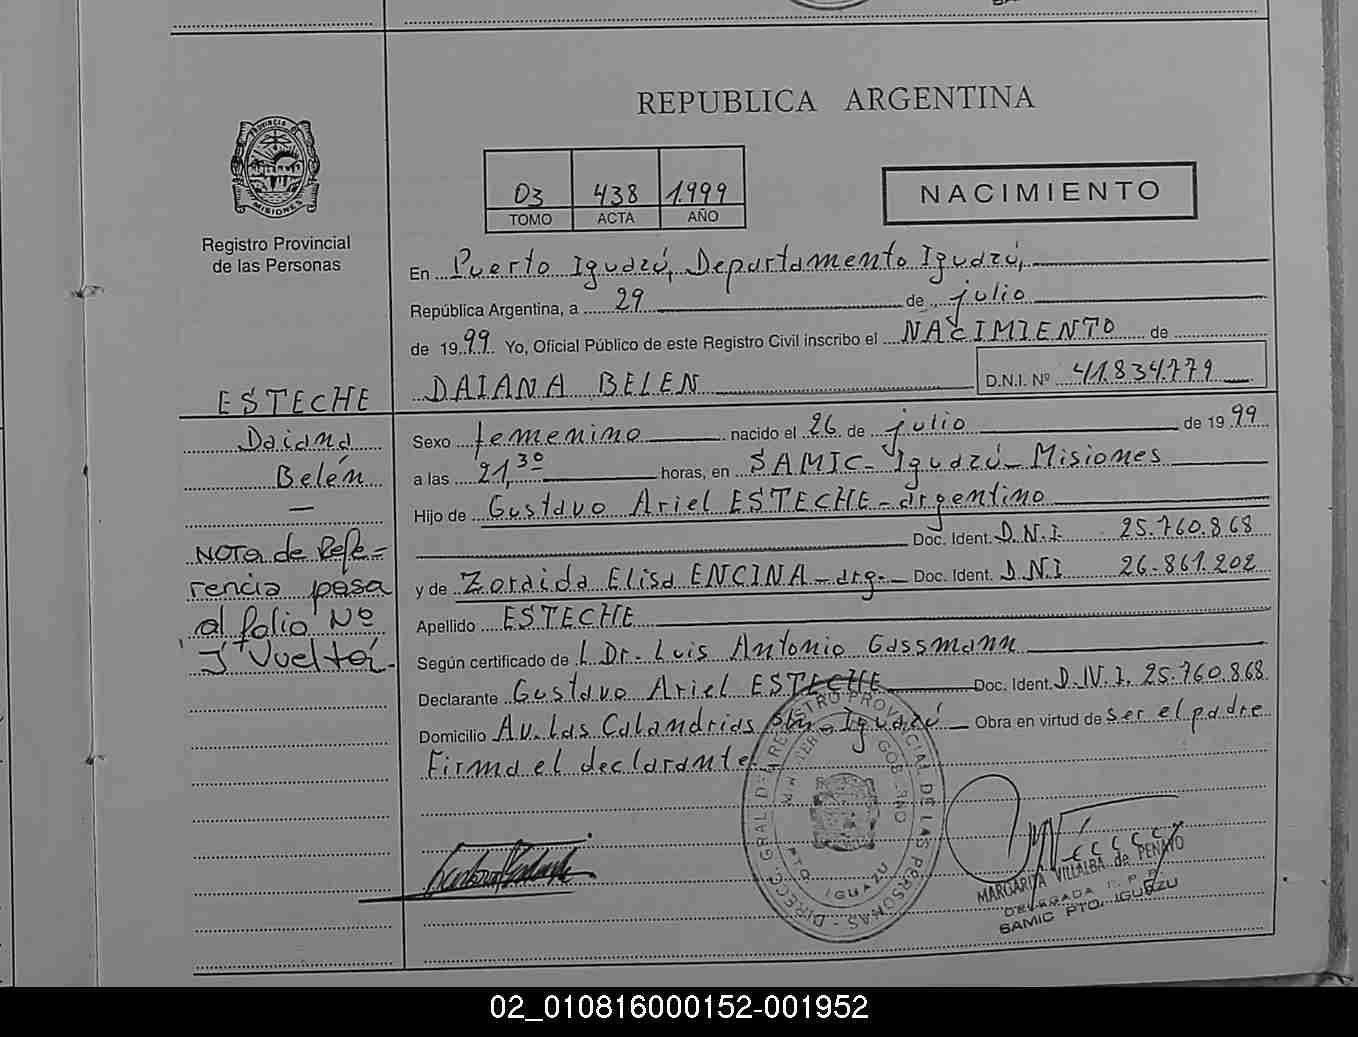 SA
REPUBLICA ARGENTINA
PROVINCIA DE
MISIONES
03 438 1.999
TOMO ACTA AÑO
NACIMIENTO
Registro Provincial
de las Personas
En Puerto Iguazú, Departamento Iguazú,
República Argentina, a 29 de julio
de 19 99 Yo, Oficial Público de este Registro Civil inscribo el NACIMIENTO de
DAIANA BELEN D.N.I. Nº 41.834.779
ESTECHE
Daiana
Belén
—
NOTA de Refe-
rencia pasa
al folio Nº
1 Vuelta.-
Sexo femenino nacido el 26 de julio de 19 99
a las 21,30 horas, en SAMIC- Iguazú- Misiones
Hijo de Gustavo Ariel ESTECHE-argentino
Doc. Ident. D.N.I. 25.760.868
y de Zoraida Elisa ENCINA-arg.- Doc. Ident. D.N.I 26.861.202
Apellido ESTECHE
Según certificado de Dr. Luis Antonio Gassmann
Declarante Gustavo Ariel ESTECHE Doc. Ident. D.N.I. 25.760.868
Domicilio Av. Las Calandrias s/n-Iguazú Obra en virtud de ser el padre
Firma el declarante.
DIRECC. GRAL. DE REGISTRO PROVINCIAL DE LAS PERSONAS
GOBIERNO
PTO. IGUAZU
MARGARITA VILLALBA de PENAYO
DELEGADA R. P. P.
SAMIC PTO. IGUAZU
02_010816000152-001952